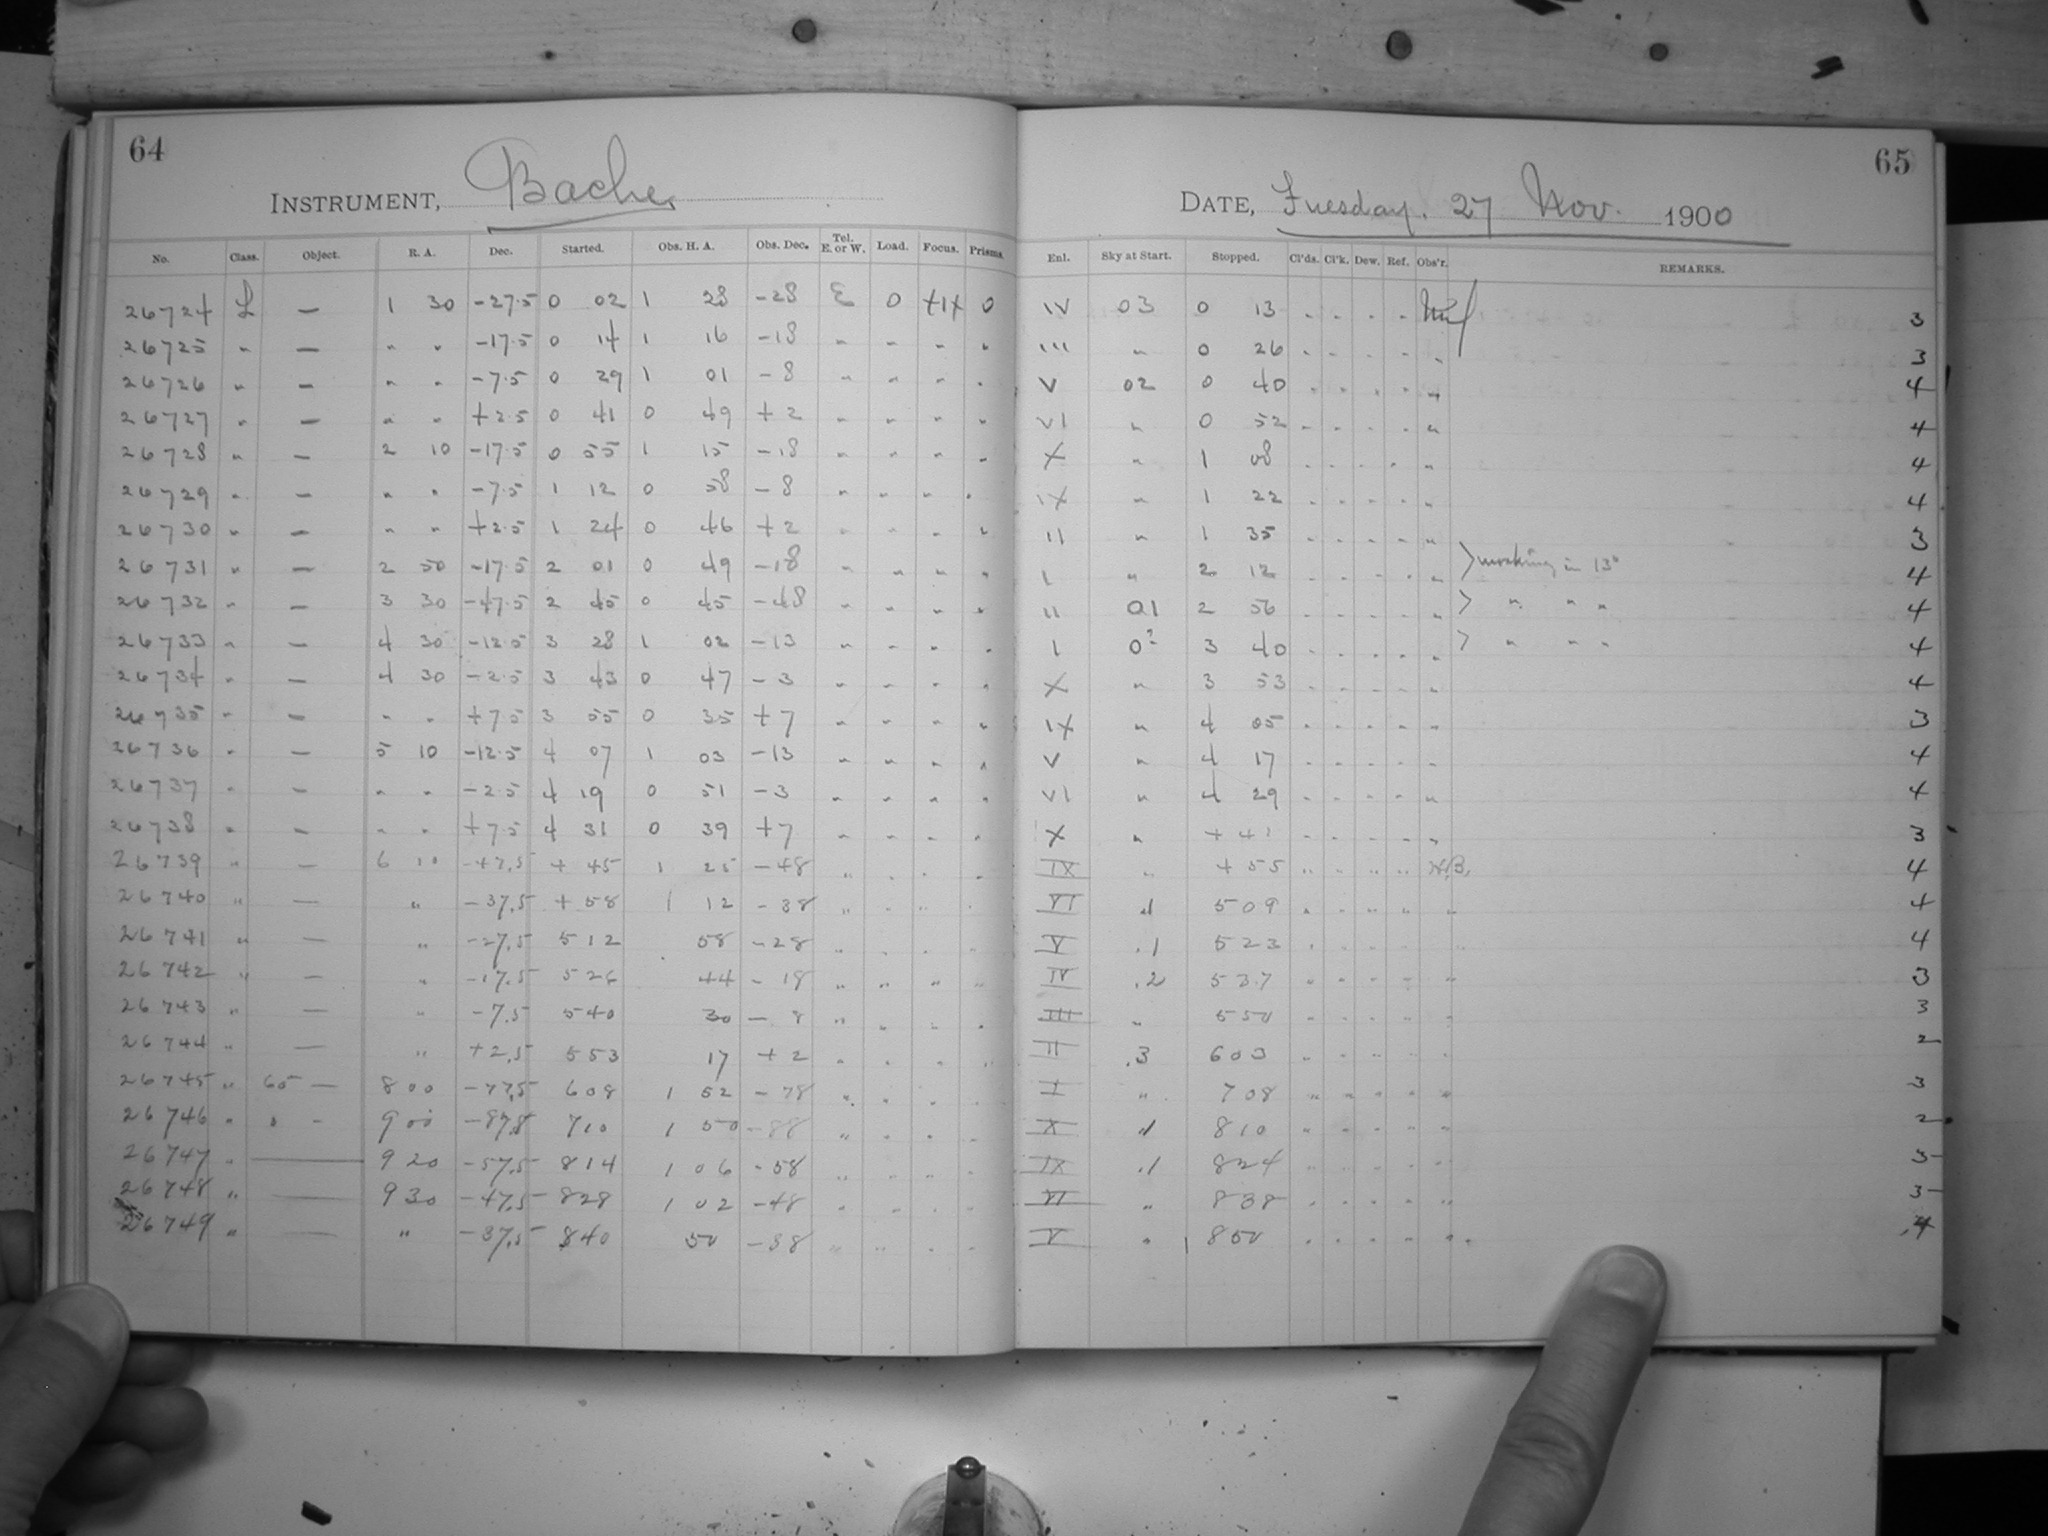 64
INSTRUMENT, Bache
No. Class. Object. R. A. Dec. Started. Obs. H. A. Obs. Dec. Tel. E. or W. Load. Focus. Prisms.
26724 L — 1 30 -27.5 0 02 1 28 -28 E 0 0
26725 " — " " -17.5 0 14 1 16 -18 " " " "
26726 " — " " -7.5 0 29 1 01 -8 " " " "
26727 " — " " +2.5 0 41 0 49 +2 " " " "
26728 " — 2 10 -17.5 0 55 1 15 -18 " " " "
26729 " — " " -7.5 1 12 0 58 -8 " " " "
26730 " — " " +2.5 1 24 0 46 +2 " " " "
26731 " — 2 50 -17.5 2 01 0 49 -18 " " " "
26732 " — 3 30 -47.5 2 45 0 45 -48 " " " "
26733 " — 4 30 -12.5 3 28 1 02 -13 " " " "
26734 " — 4 30 -2.5 3 43 0 47 -3 " " " "
26735 " — " " +7.5 3 55 0 35 +7 " " " "
26736 " — 5 10 -12.5 4 07 1 03 -13 " " " "
26737 " — " " -2.5 4 19 0 51 -3 " " " "
26738 " — " " +7.5 4 31 0 39 +7 " " " "
26739 " — 6 10 -47.5 4 45 1 25 -48 " " " "
26740 " — " -37.5 4 58 1 12 -38 " " " "
26741 " — " -27.5 5 12 58 -28 " " " "
26742 " — " -17.5 5 26 44 -18 " " " "
26743 " — " -7.5 5 40 30 -8 " " " "
26744 " — " +2.5 5 53 17 +2 " " " "
26745 " 60 — 8 00 -77.5 6 08 1 52 -78 " " " "
26746 " " - 9 00 -87.8 7 10 1 50 -88 " " " "
26747 " — 9 20 -57.5 8 14 1 06 -58 " " " "
26748 " — 9 30 -47.5 8 28 1 02 -48 " " " "
26749 " — " -37.5 8 40 50 -38 " " " "
65
DATE, Tuesday. 27 Nov. 1900
Enl. Sky at Start. Stopped. Cl'ds. Cl'k. Dew. Ref. Obs'r. REMARKS.
IV 03 0 13 " " " " 3
III " 0 26 " " " " " 3
V 02 0 40 " " " " " 4
VI " 0 52 " " " " " 4
X " 1 08 " " " " " 4
IX " 1 22 " " " " " 4
II " 1 35 " " " " " 3
I " 2 12 " " " " " > working in 13" 4
II 01 2 56 " " " " " > " " " 4
I 0? 3 40 " " " " " > " " " 4
X " 3 53 " " " " " 4
IX " 4 05 " " " " " 3
V " 4 17 " " " " " 4
VI " 4 29 " " " " " 4
X " 4 41 " " " " " 3
IX " 4 55 " " " " 4
VI .1 5 09 " " " " " 4
V .1 5 23 " " " " " 4
IV .2 5 37 " " " " " 3
III " 5 50 " " " " " 3
II .3 6 03 " " " " " 2
I " 7 08 " " " " " 3
X .1 8 10 " " " " " 2
IX .1 8 24 " " " " " 3
VI " 8 38 " " " " " 3
V " 8 50 " " " " " 4